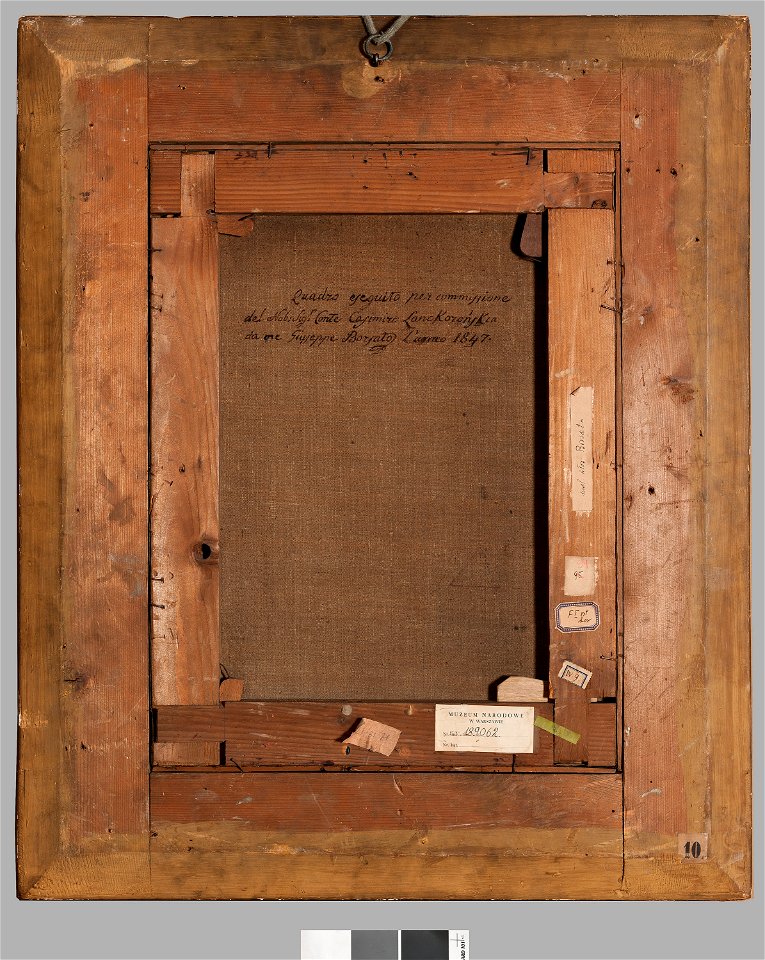 Quadro eseguito per commissione
del Nob. Sigr Conte Casimiro Lanckoroński
da me Giuseppe Borsato l'anno 1847.
95.
No 9
21
MUZEUM NARODOWE
W WARSZAWIE
189062
10